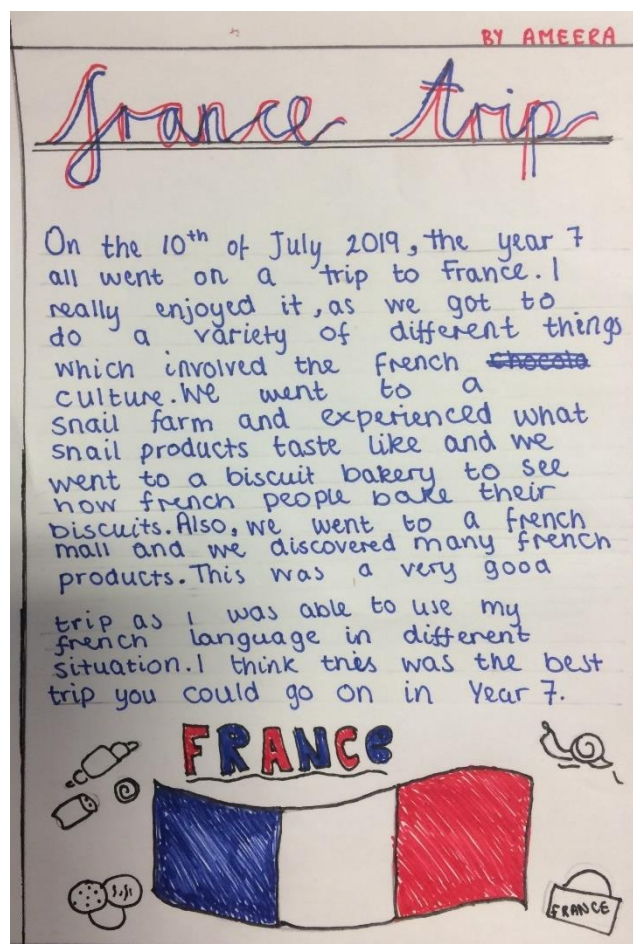 BY AMEERA
france trip
On the 10th of July 2019, the year 7
all went on a trip to France. I
really enjoyed it, as we got to
do a variety of different things
which involved the french chocola
culture. We went to a
snail farm and experienced what
snail products taste like and we
went to a biscuit bakery to see
how french people bake their
biscuits. Also, we went to a french
mall and we discovered many french
products. This was a very good
trip as I was able to use my
french language in different
situation. I think this was the best
trip you could go on in Year 7.
FRANCE
FRANCE